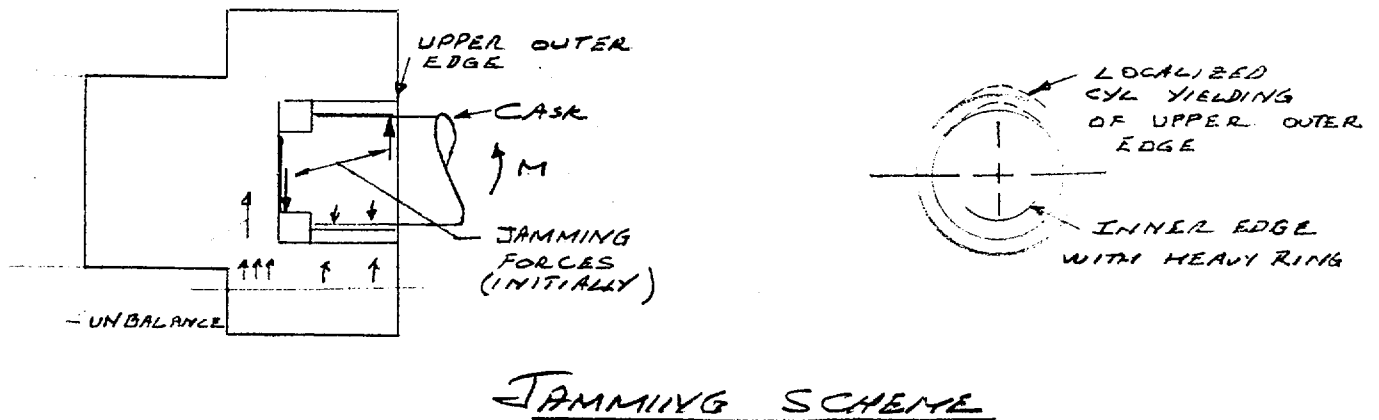 UPPER OUTER
EDGE
CASK
M
JAMMING
FORCES
(INITIALLY)
- UNBALANCE
LOCALIZED
CYL YIELDING
OF UPPER OUTER
EDGE
INNER EDGE
WITH HEAVY RING
JAMMING SCHEME